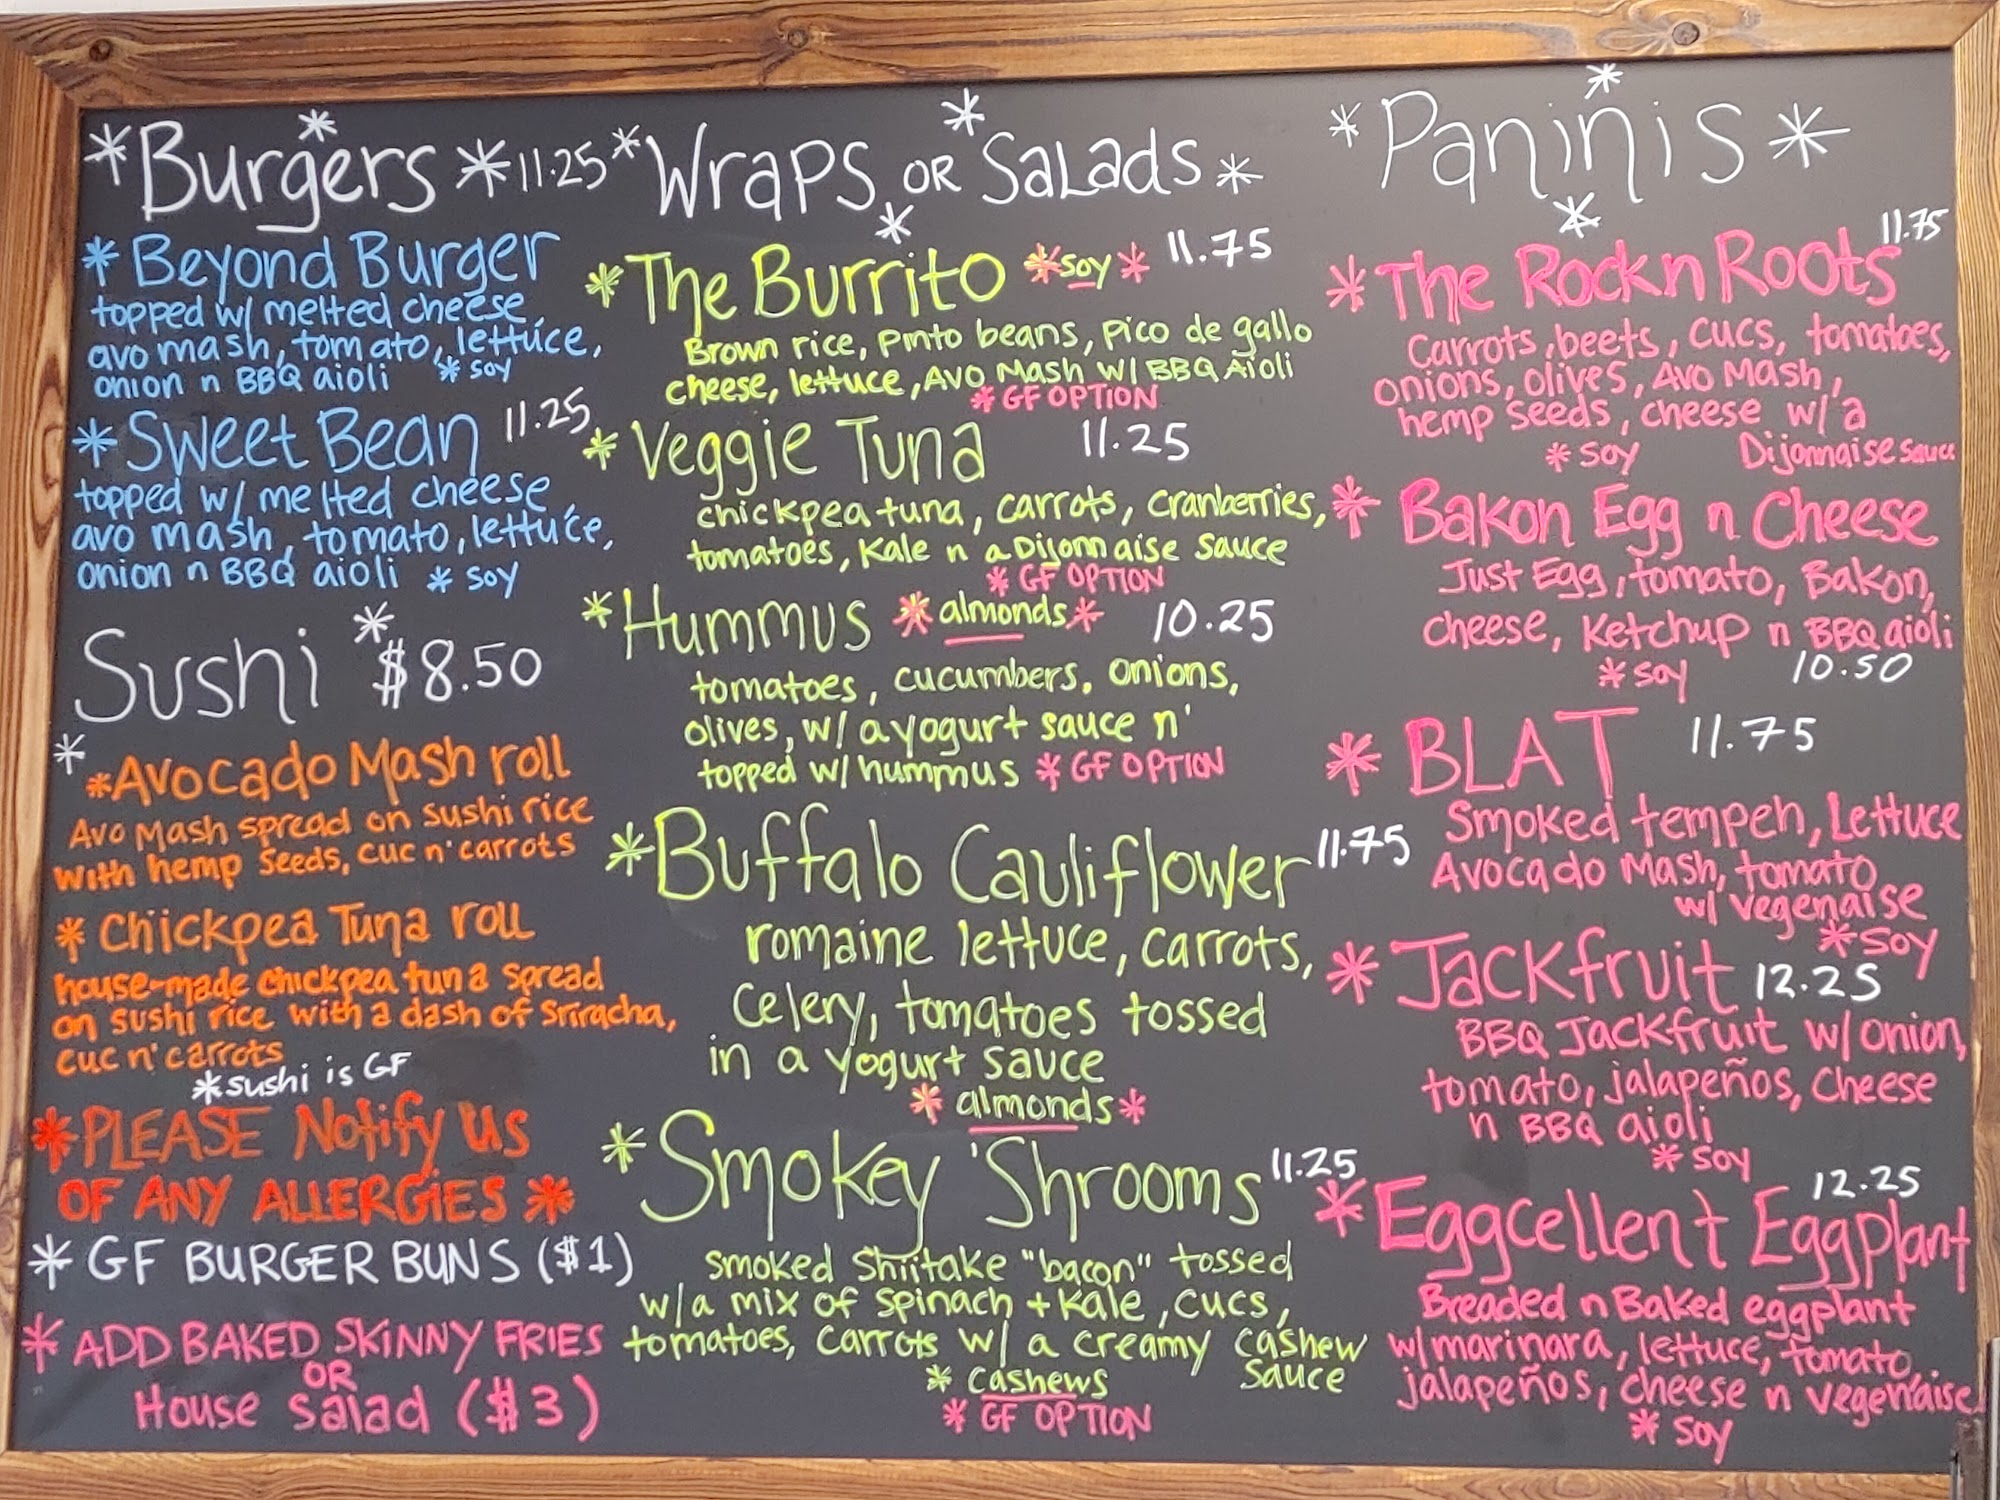 *Burgers* 11.25
*Beyond Burger
topped w/ melted cheese,
avo mash, tomato, lettuce,
onion n BBQ aioli *soy
*Sweet Bean 11.25
topped w/ melted cheese,
avo mash, tomato, lettuce,
onion n BBQ aioli *soy
Sushi *$8.50
*Avocado Mash roll
Avo Mash spread on sushi rice
with hemp seeds, cuc n' carrots
*Chickpea Tuna roll
house-made chickpea tuna spread
on sushi rice with a dash of Sriracha,
cuc n' carrots
*sushi is GF
*PLEASE Notify us
OF ANY ALLERGiES*
*GF BURGER BUNS ($1)
*ADD BAKED SKINNY FRIES
OR
House Salad ($3)
*Wraps OR Salads*
*The Burrito *soy* 11.75
Brown rice, pinto beans, pico de gallo
cheese, lettuce, Avo Mash w/ BBQ Aioli
*GF OPTION
*Veggie Tuna 11.25
chickpea tuna, carrots, cranberries,
tomatoes, Kale n a Dijonnaise sauce
*GF OPTION
*Hummus *almonds* 10.25
tomatoes, cucumbers, onions,
olives, w/ a yogurt sauce n'
topped w/ hummus *GF OPTION
*Buffalo Cauliflower 11.75
romaine lettuce, carrots,
celery, tomatoes tossed
in a yogurt sauce
*almonds*
*Smokey 'Shrooms 11.25
smoked Shiitake "bacon" tossed
w/ a mix of spinach + Kale, cucs,
tomatoes, carrots w/ a creamy cashew
sauce
*cashews
*GF OPTION
*Paninis*
11.75
*The Rockn Roots
Carrots, beets, cucs, tomatoes,
onions, olives, Avo Mash,
hemp seeds, cheese w/ a
*soy Dijonnaise sauce
*Bakon Egg n Cheese
Just Egg, tomato, Bakon,
cheese, Ketchup n BBQ aioli
*soy 10.50
*BLAT 11.75
Smoked tempeh, Lettuce
Avocado Mash, tomato
w/ vegenaise
*soy
*Jackfruit 12.25
BBQ Jackfruit w/ onion,
tomato, jalapeños, cheese
n BBQ aioli
*soy
12.25
*Eggcellent Eggplant
Breaded n Baked eggplant
w/ marinara, lettuce, tomato,
jalapeños, cheese n vegenaise
*soy